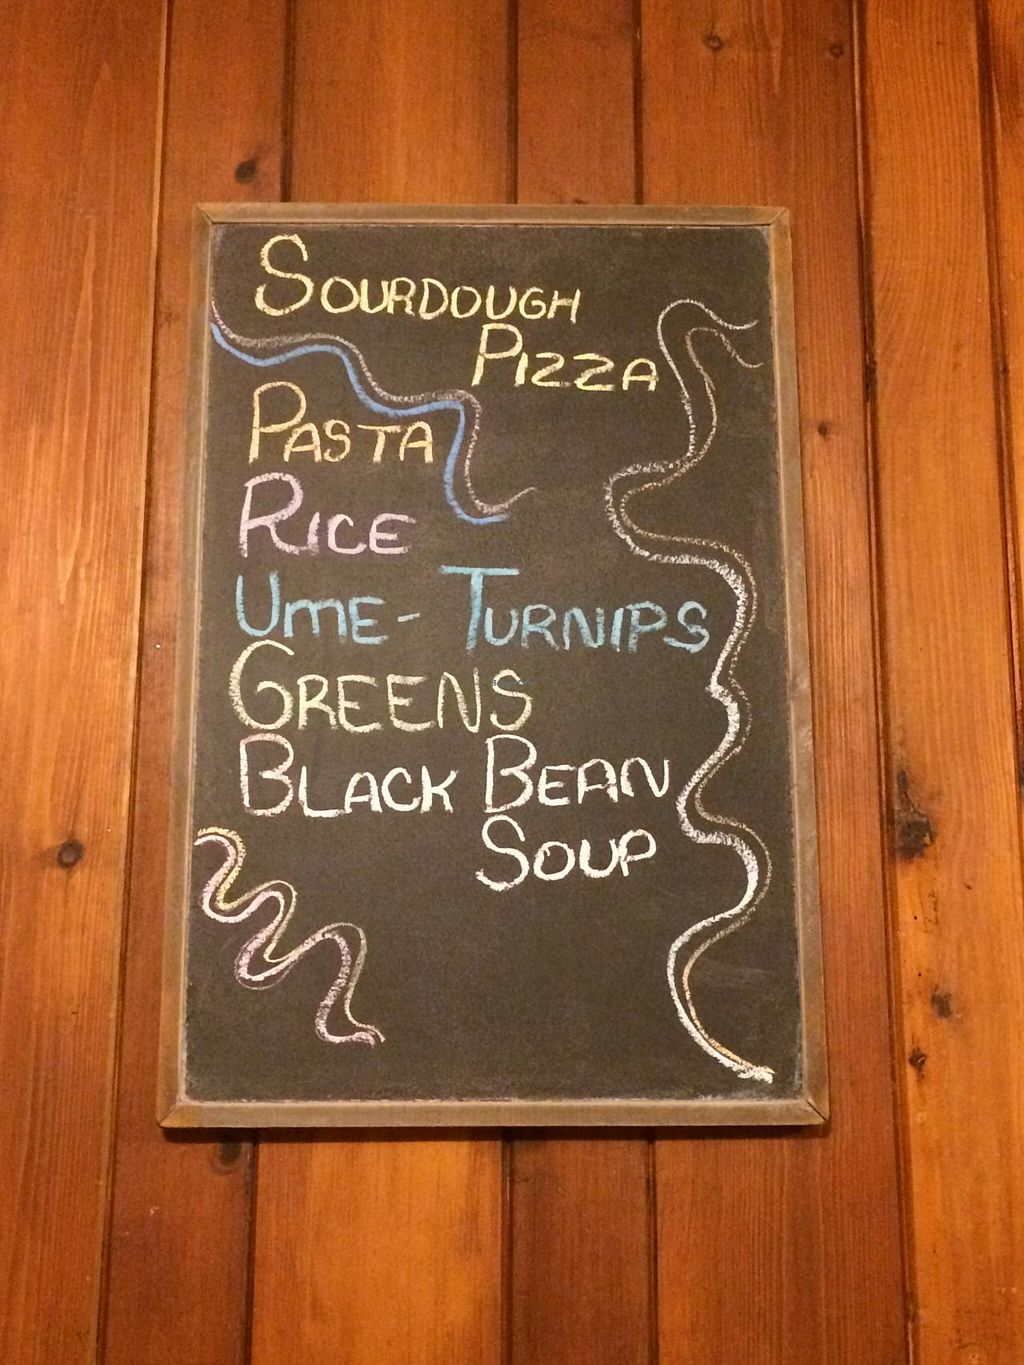 SOURDOUGH
PIZZA
PASTA
RICE
UME- TURNIPS
GREENS
BLACK BEAN
SOUP